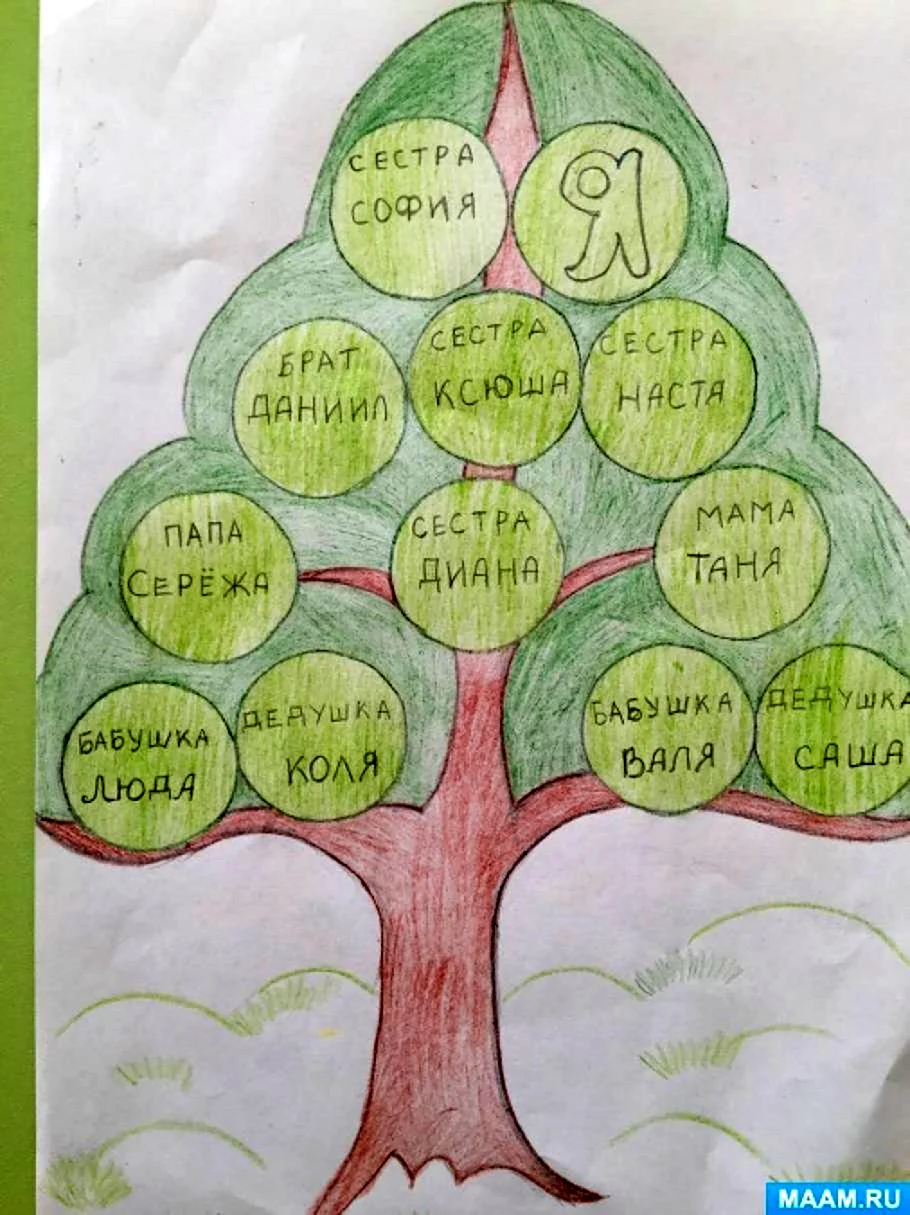 СЕСТРА
СОФИЯ
Я
БРАТ
ДАНИИЛ
СЕСТРА
КСЮША
СЕСТРА
НАСТЯ
ПАПА
СЕРЁЖА
СЕСТРА
ДИАНА
МАМА
ТАНЯ
БАБУШКА
ЛЮДА
ДЕДУШКА
КОЛЯ
БАБУШКА
ВАЛЯ
ДЕДУШКА
САША
MAAM.RU